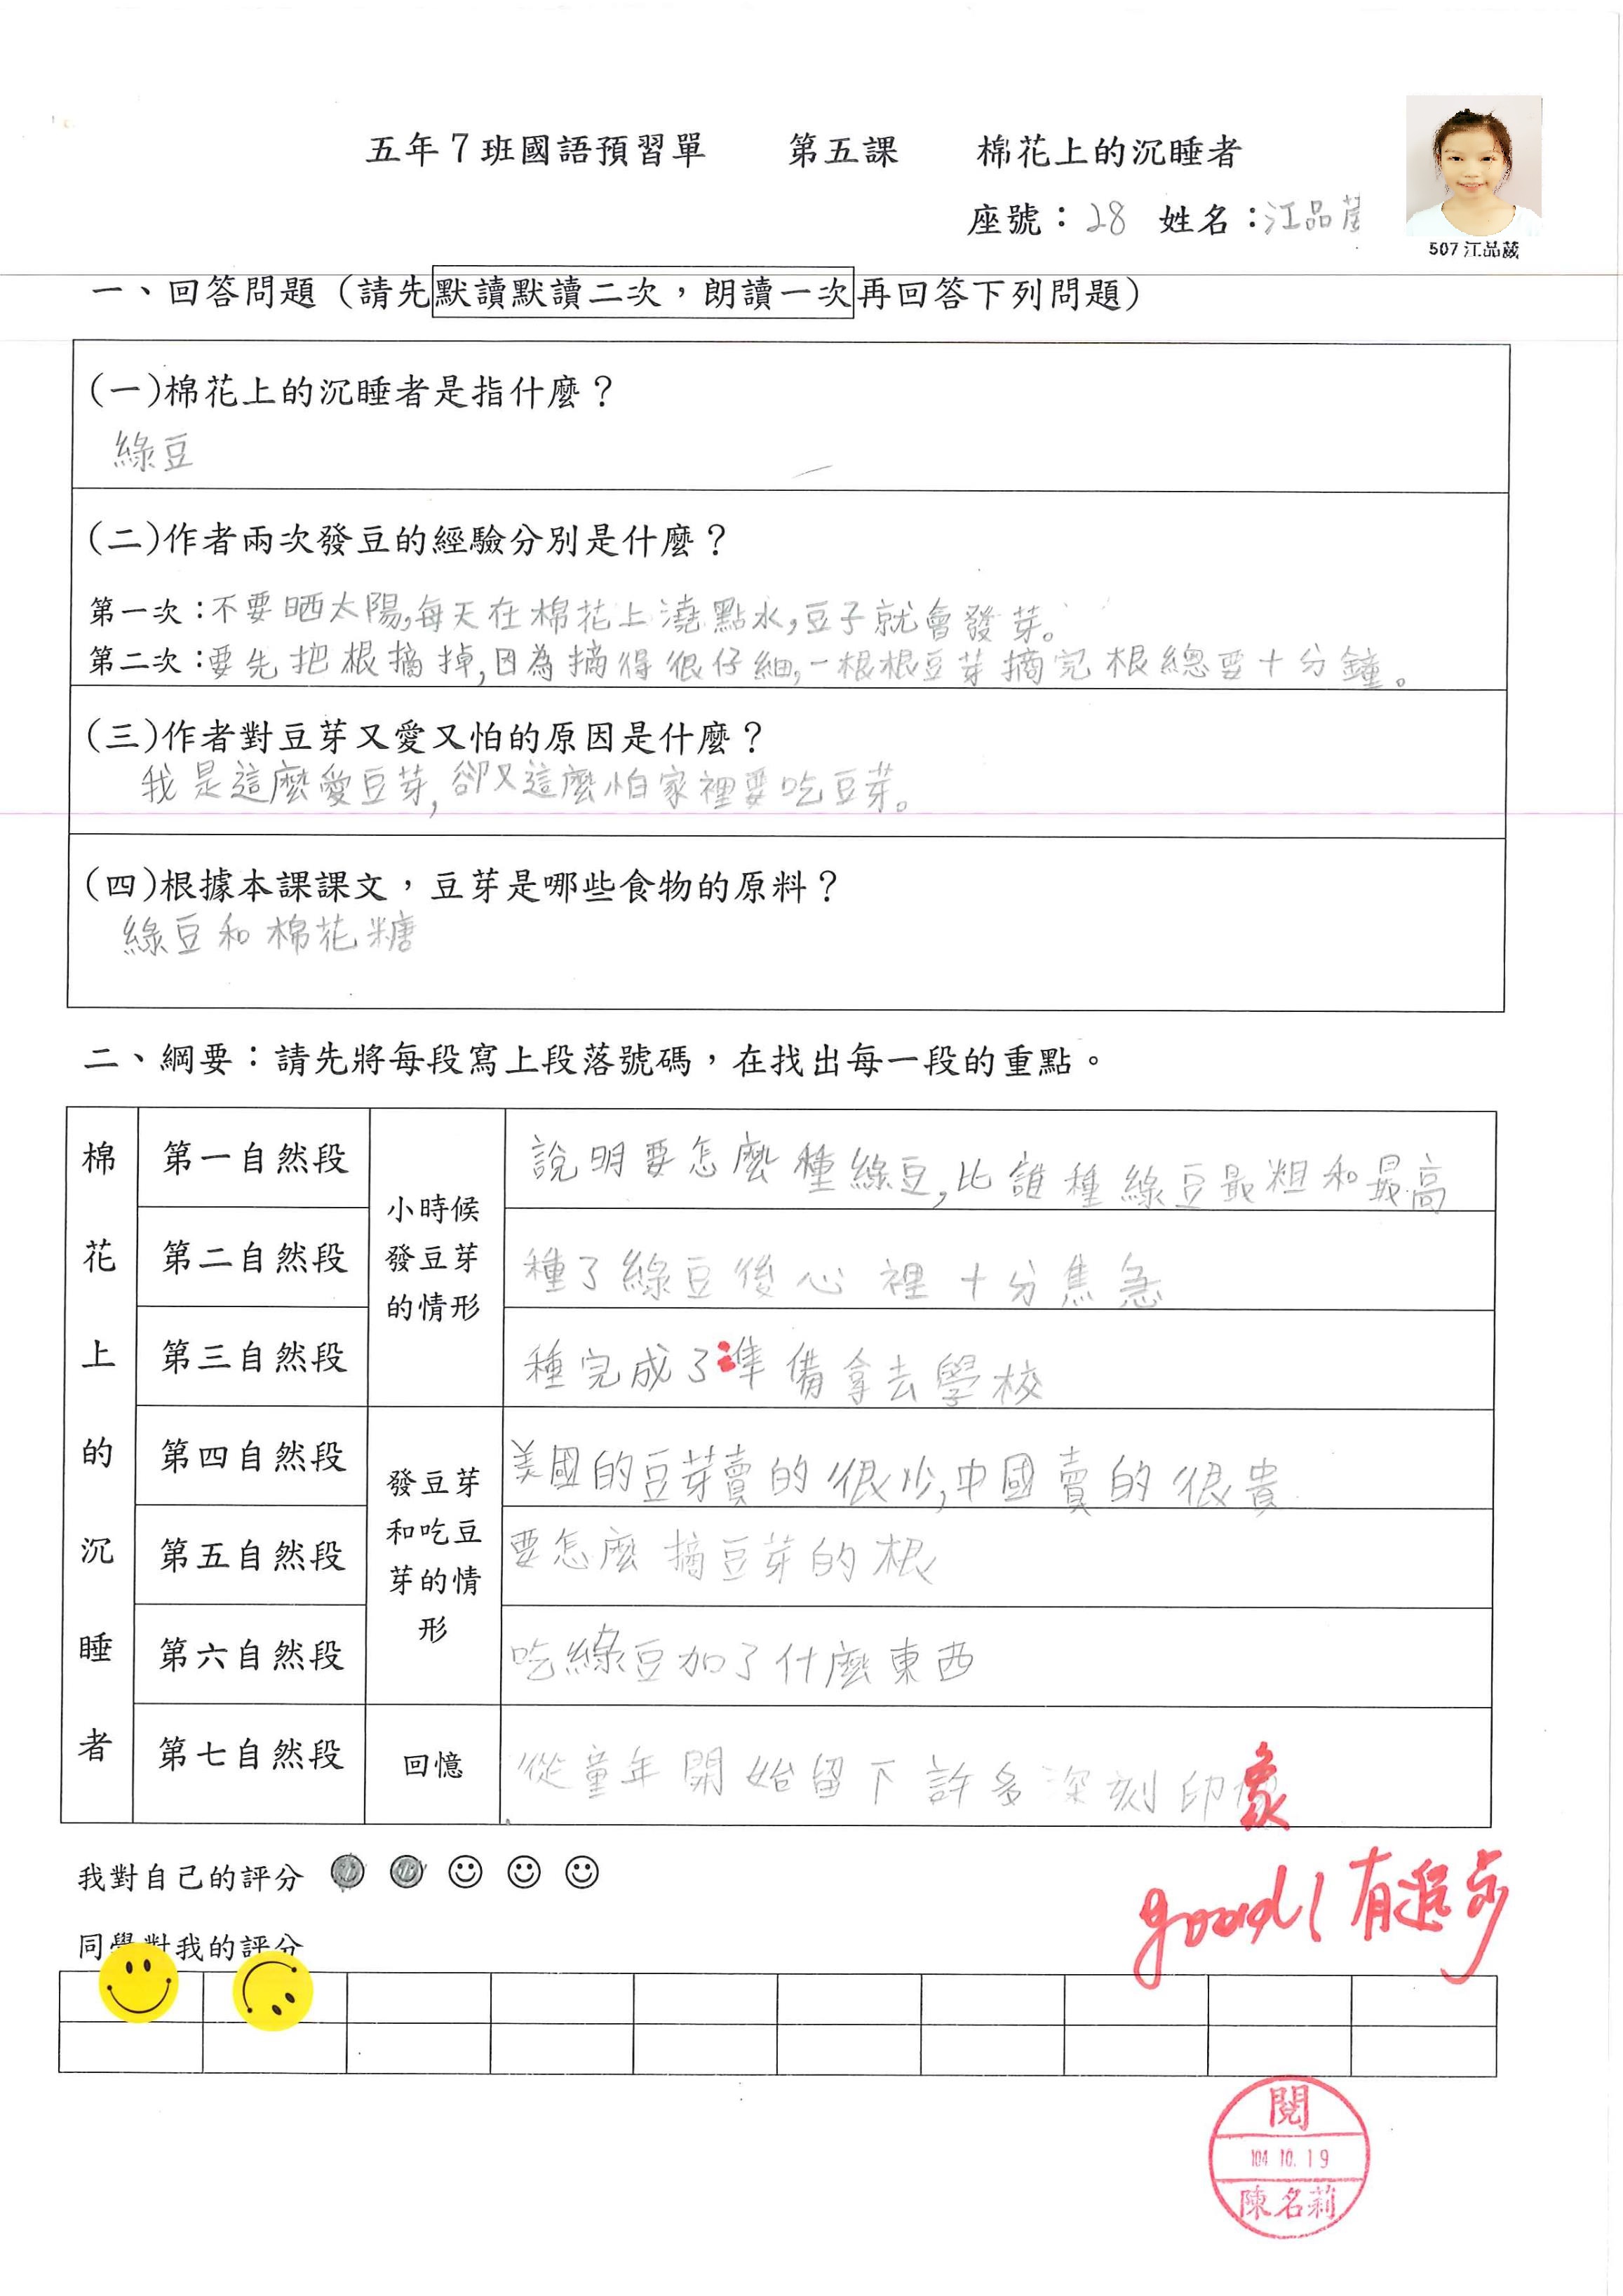 五年7班國語預習單 第五課 棉花上的沉睡者
座號：28 姓名：江品葳
507 江品葳
一、回答問題（請先默讀默讀二次，朗讀一次再回答下列問題）
(一)棉花上的沉睡者是指什麼？
綠豆
(二)作者兩次發豆的經驗分別是什麼？
第一次：不要晒太陽,每天在棉花上澆點水,豆子就會發芽。
第二次：要先把根摘掉,因為摘得很仔細,一根根豆芽摘完根總要十分鐘。
(三)作者對豆芽又愛又怕的原因是什麼？
我是這麼愛豆芽,卻又這麼怕家裡要吃豆芽。
(四)根據本課課文，豆芽是哪些食物的原料？
綠豆和棉花糖
二、綱要：請先將每段寫上段落號碼，在找出每一段的重點。
棉花上的沉睡者
小時候發豆芽的情形
第一自然段 說明要怎麼種綠豆,比誰種綠豆最粗和最高
第二自然段 種了綠豆後心裡十分焦急
第三自然段 種完成了準備拿去學校
發豆芽和吃豆芽的情形
第四自然段 美國的豆芽賣的很少,中國賣的很貴
第五自然段 要怎麼摘豆芽的根
第六自然段 吃綠豆加了什麼東西
第七自然段 回憶 從童年開始留下許多深刻印象
我對自己的評分
good! 有進步
同學對我的評分
閱
104.10.19
陳名莉